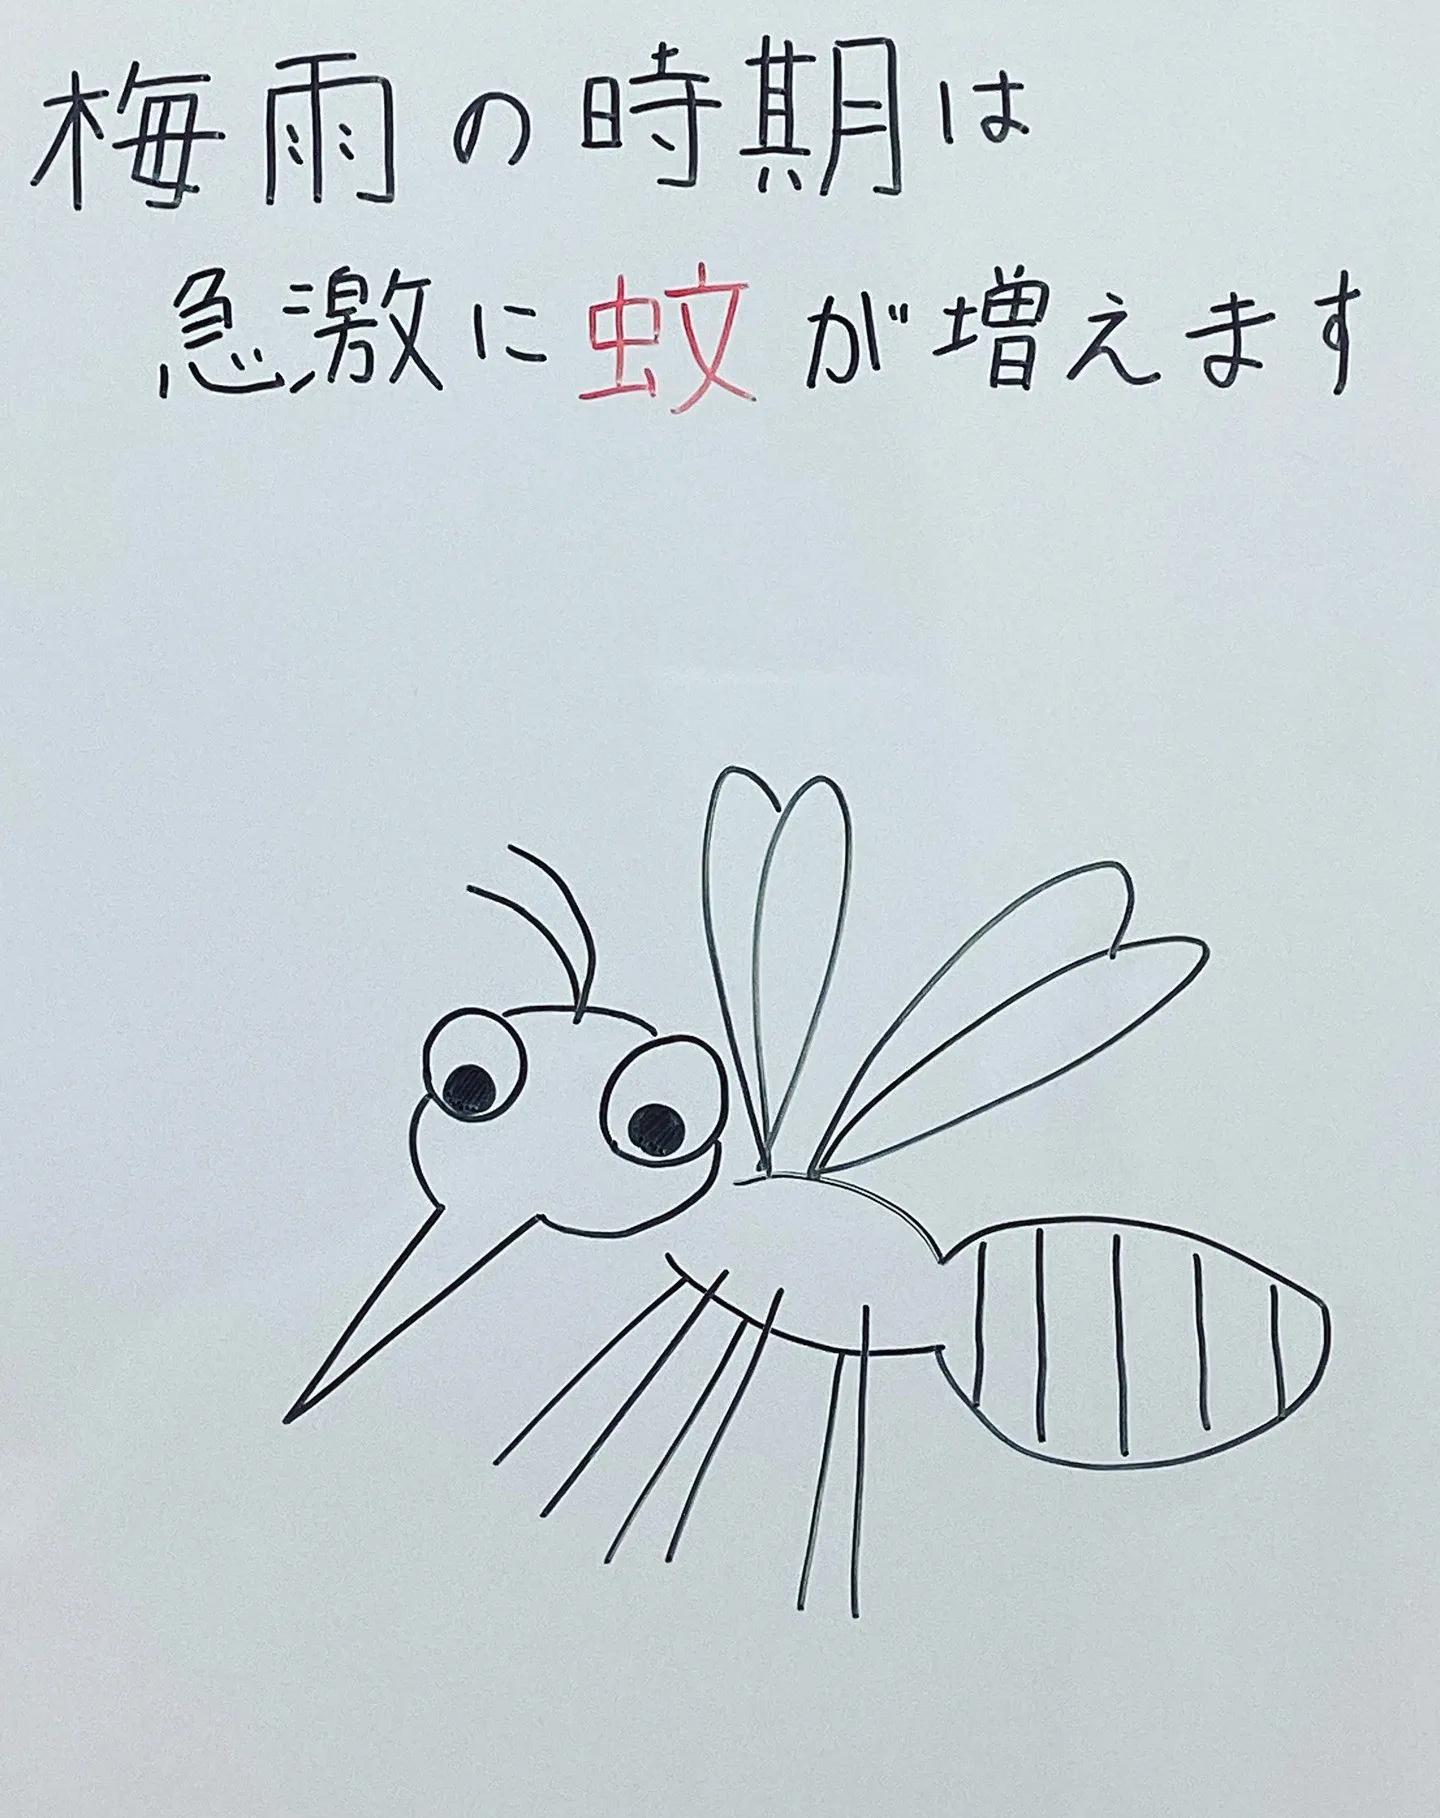 梅雨の時期は
急激に蚊が増えます